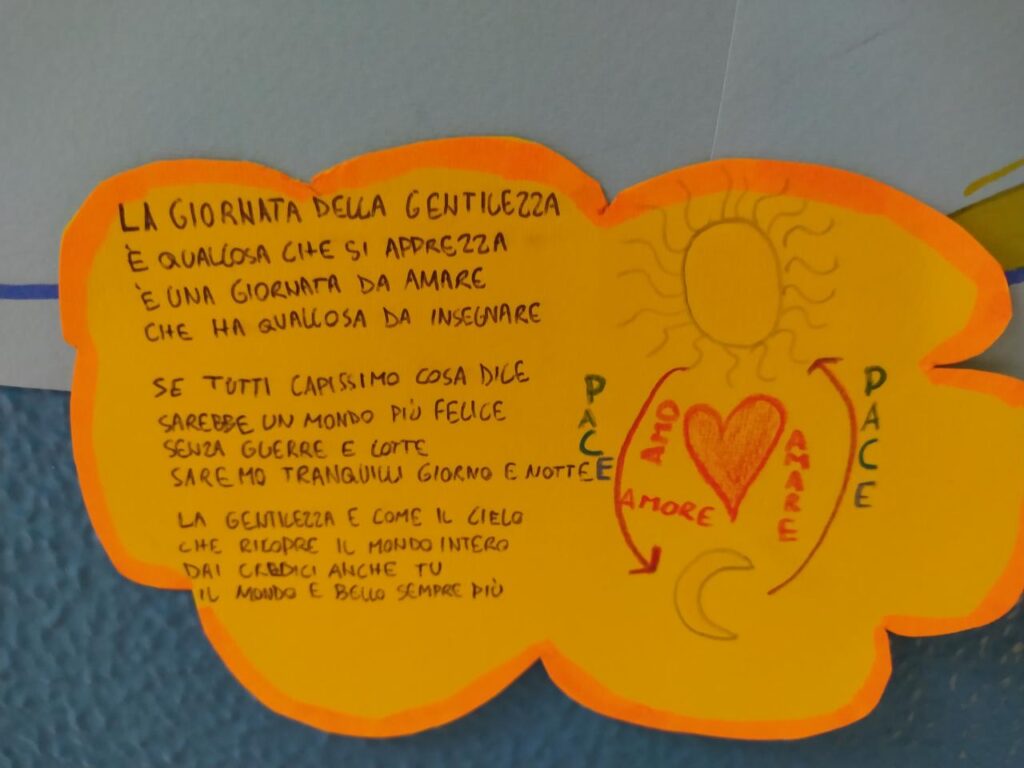 LA GIORNATA DELLA GENTILEZZA
È QUALCOSA CHE SI APPREZZA
È UNA GIORNATA DA AMARE
CHE HA QUALCOSA DA INSEGNARE
SE TUTTI CAPISSIMO COSA DICE
SAREBBE UN MONDO PIÙ FELICE
SENZA GUERRE E LOTTE
SAREMO TRANQUILLI GIORNO E NOTTE
LA GENTILEZZA E COME IL CIELO
CHE RICOPRE IL MONDO INTERO
DAI CREDICI ANCHE TU
IL MONDO E BELLO SEMPRE PIÙ
PACE
AMO
AMORE
AMARE
PACE